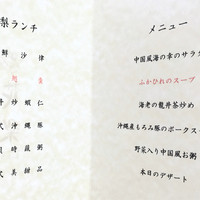 メニュー
中国風海の幸のサラダ
ふかひれのスープ
海老の龍井茶炒め
沖縄産もろみ豚のポークス
野菜入り中国風お粥
本日のデザート
梨ランチ
鮮沙律
翅羹
井炒蝦仁
式沖縄豚
時蔬粥
式美甜品